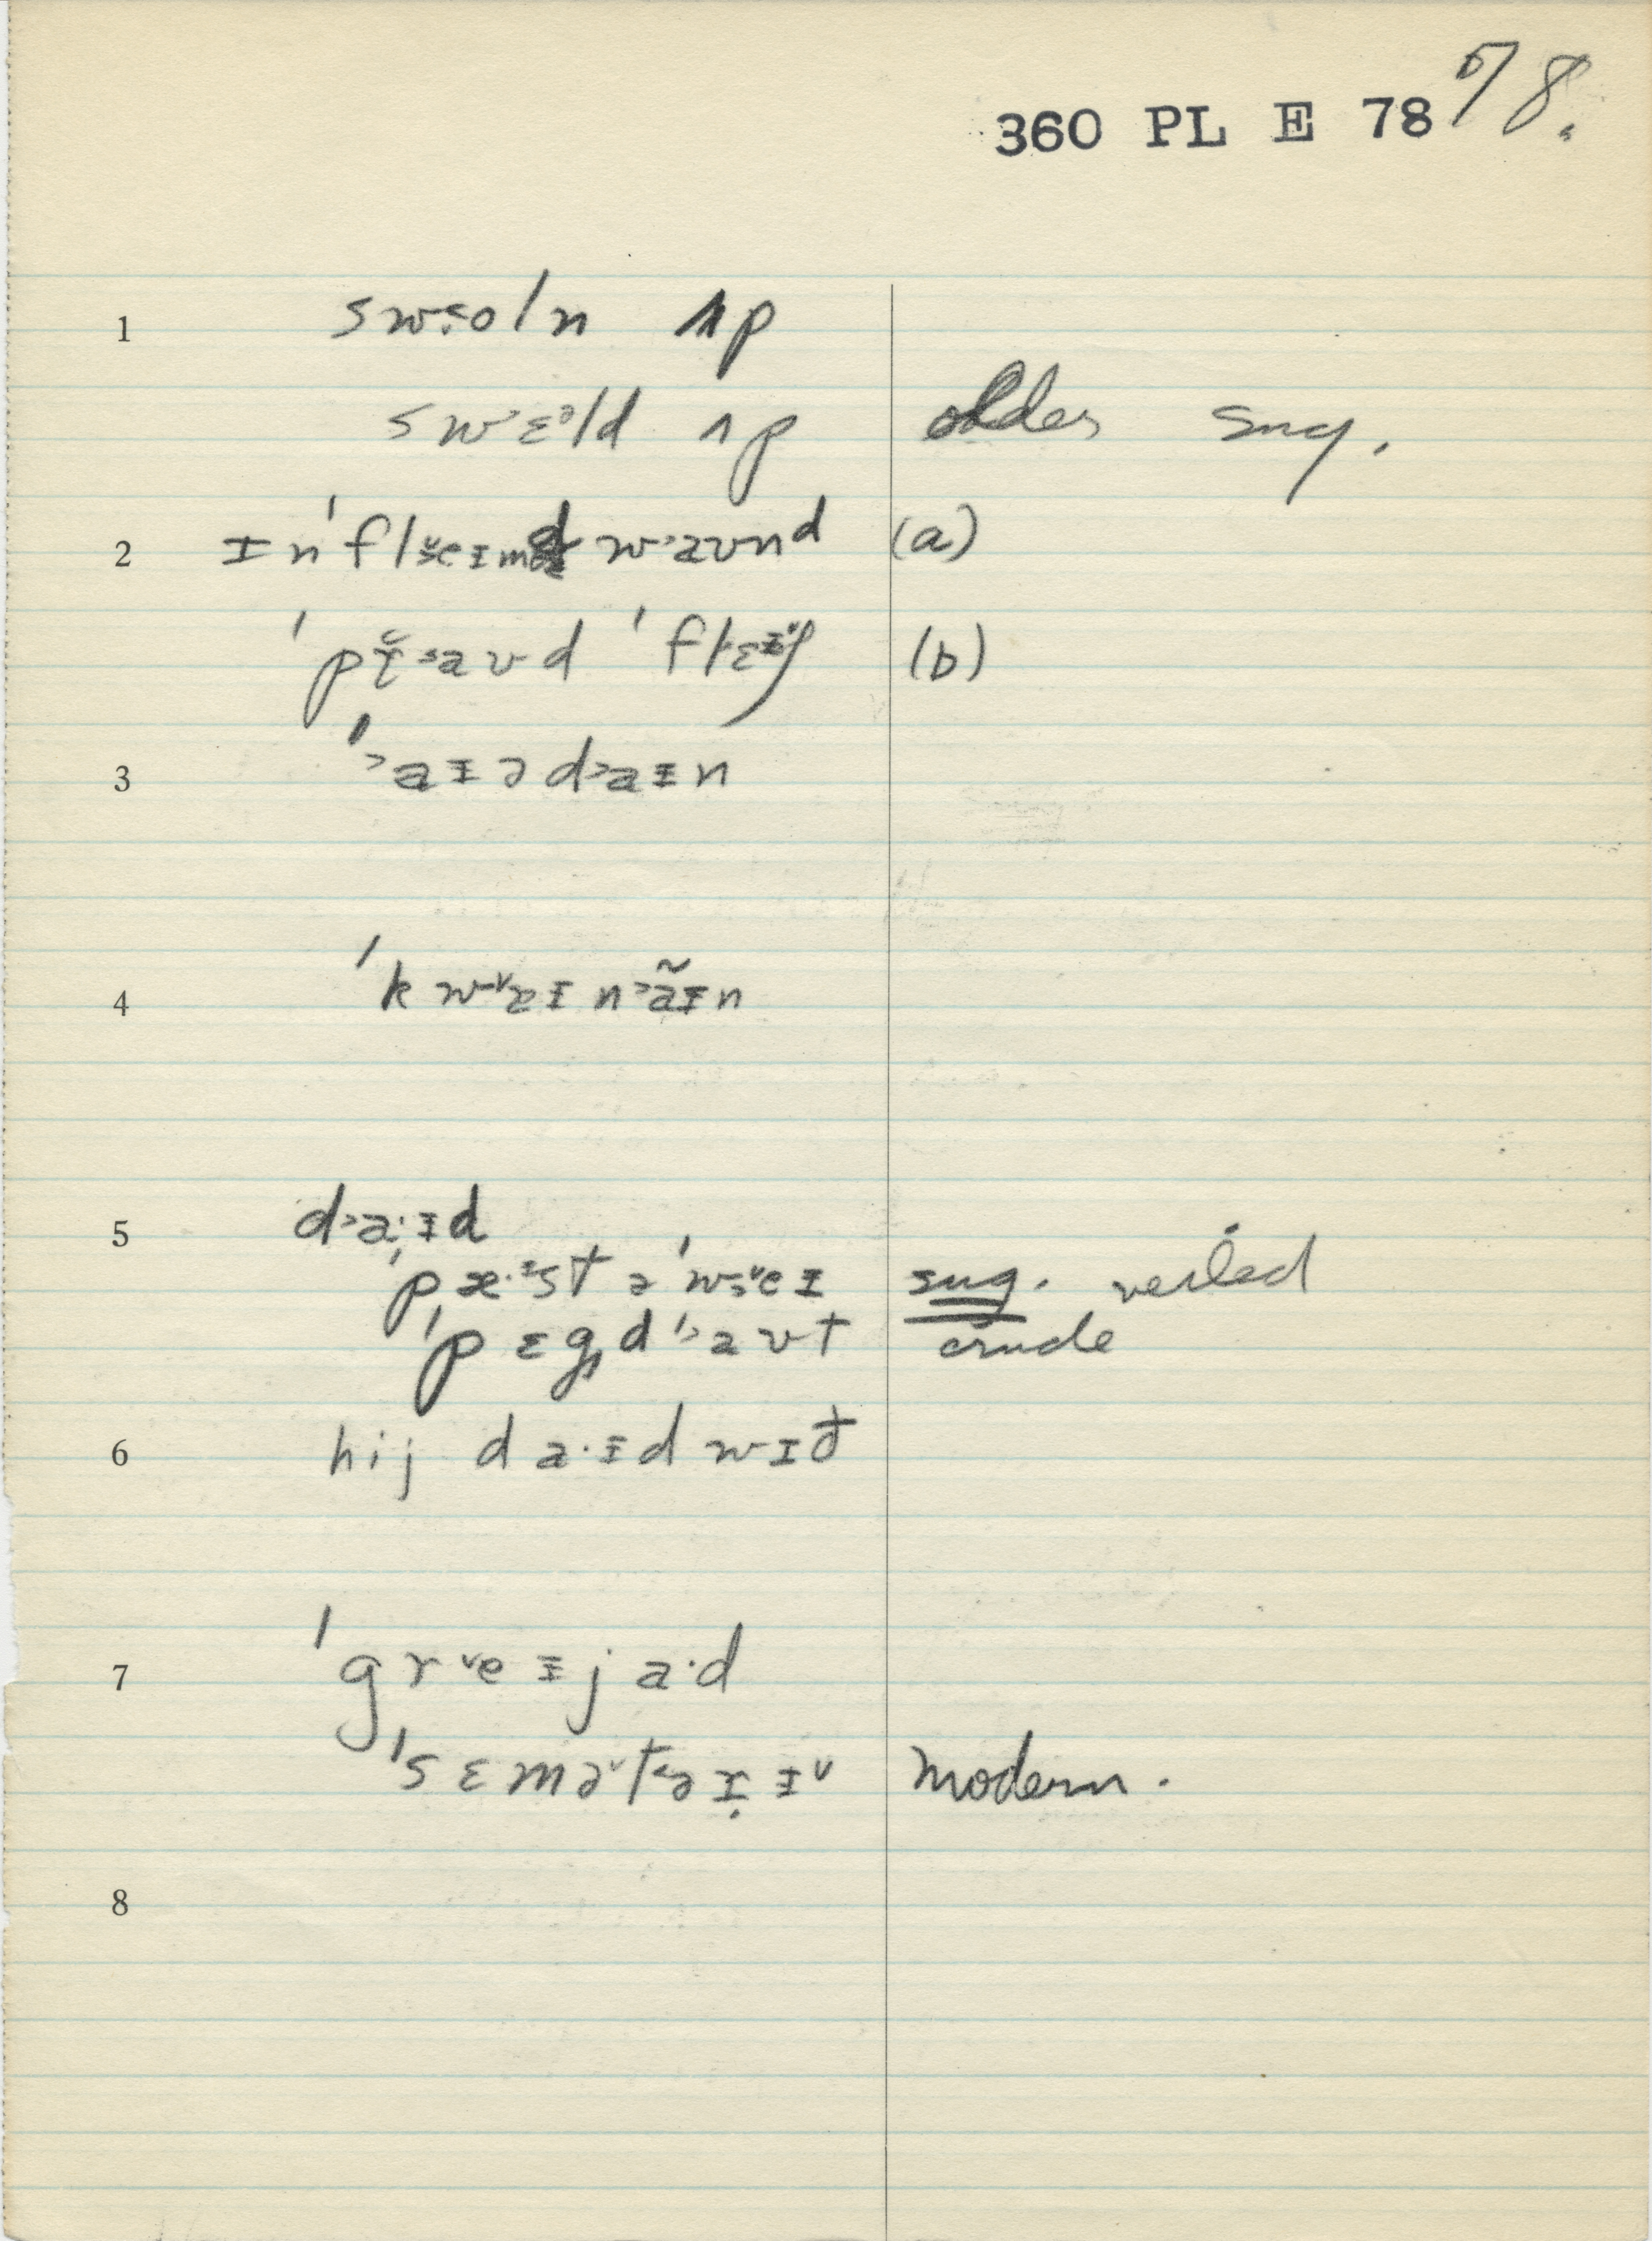 360 PL E 78 78.
1 sw˂oln ʌp
swɛᵊld ʌp older sug.
2 ɪn'fl˅eɪmd w˃aʊnd (a)
'pr̆˃aʊd 'flɛɪʃ (b)
3 '˃aɪədaɪn
4 'kw˅eɪn˃ãɪn
5 d˃a·ɪd
'pæ·ᶦst ə'w˅eɪ sug. veiled
'pɛgd '˃aʊt crude
6 hij da·ɪd wɪð
7 'gr˅eɪja·d
'sɛmə˅t˂ərɪ˅ modern.
8